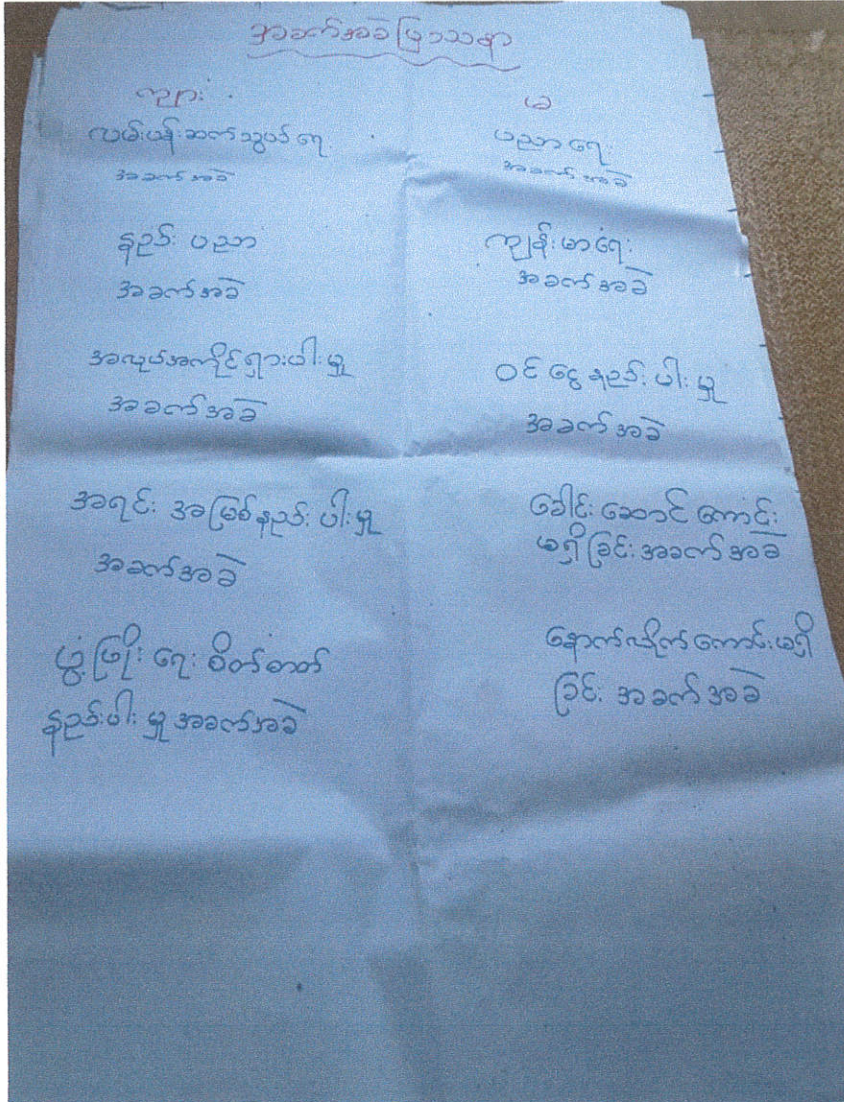 အခက်အခဲပြဿနာ
ကျား
လမ်းပန်းဆက်သွယ်ရေး
အခက်အခဲ
နည်းပညာ
အခက်အခဲ
အလုပ်အကိုင်ရှားပါးမှု
အခက်အခဲ
အရင်းအမြစ်နည်းပါးမှု
အခက်အခဲ
ဖွံ့ဖြိုးရေးစိတ်ဓာတ်
နည်းပါးမှုအခက်အခဲ
မ
ပညာရေး
အခက်အခဲ
ကျန်းမာရေး
အခက်အခဲ
ဝင်ငွေနည်းပါးမှု
အခက်အခဲ
ခေါင်းဆောင်ကောင်း
မရှိခြင်းအခက်အခဲ
နောက်လိုက်ကောင်းမရှိ
ခြင်းအခက်အခဲ